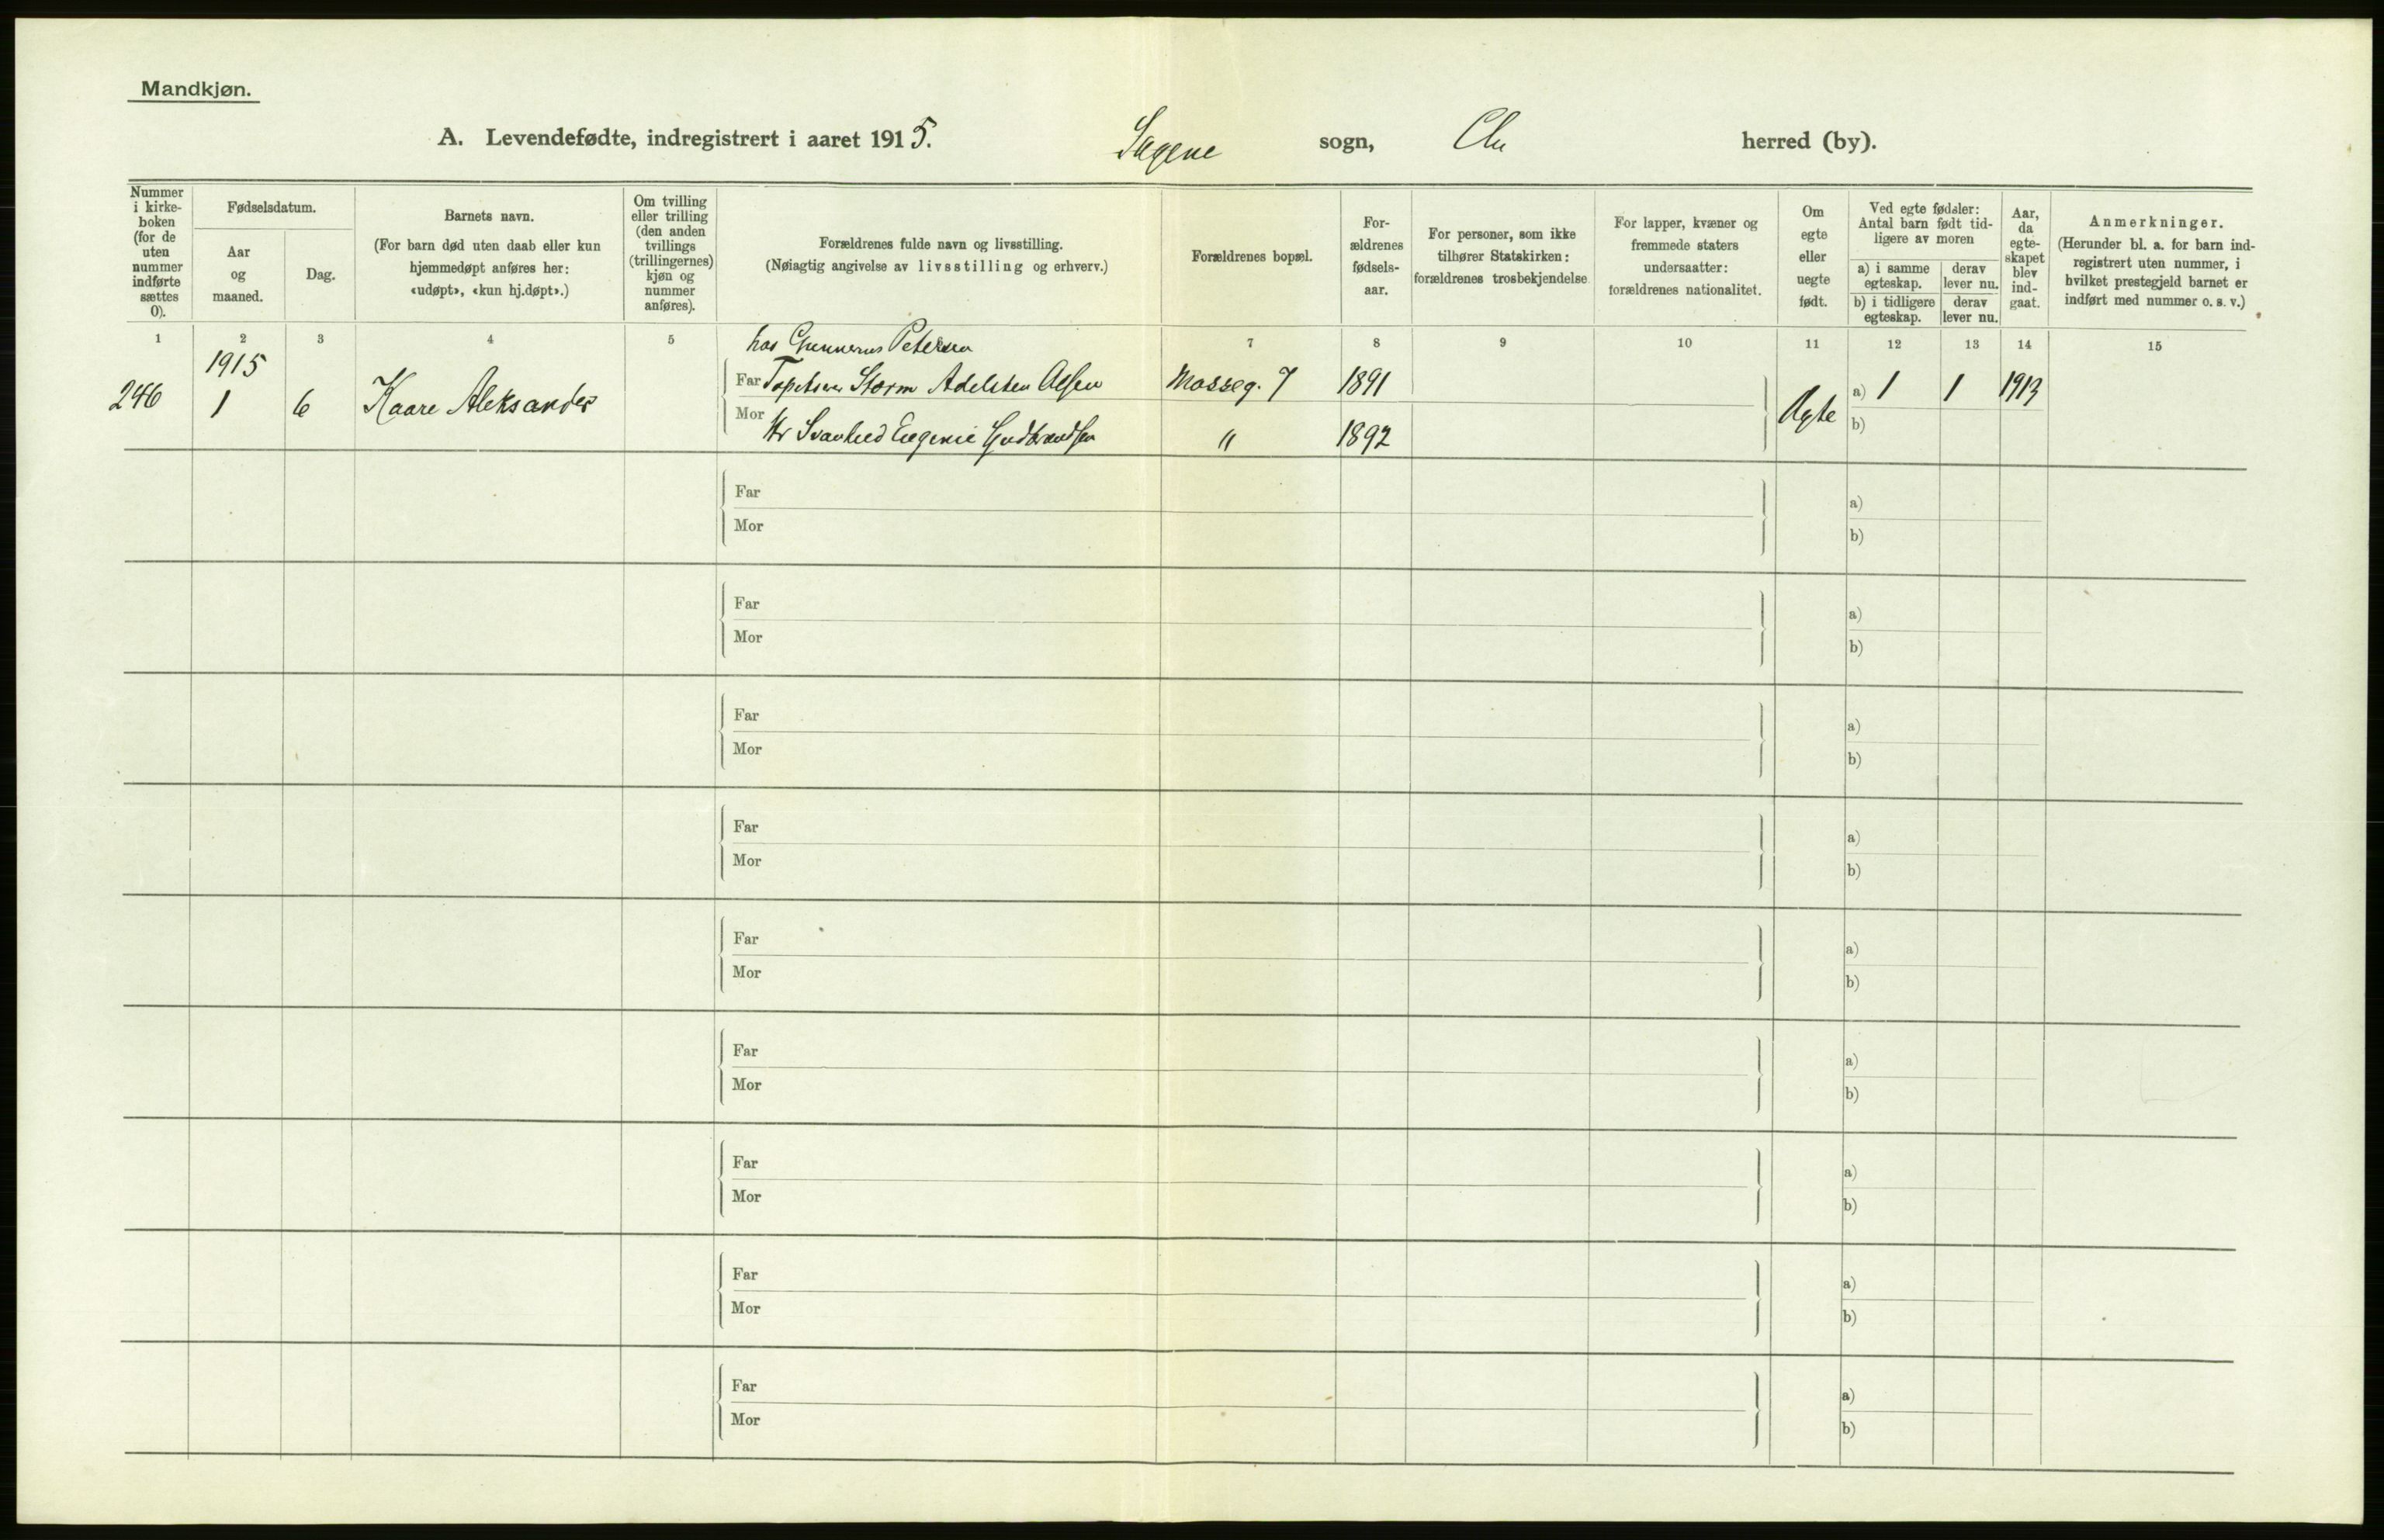 Mandkjøn.
A. Levendefødte, indregistrert i aaret 1915. Sagene sogn, Chr herred (by).
Nummer i kirke-boken (for de uten nummer indførte sættes 0).
Fødselsdatum.
Aar og maaned.
Dag.
Barnets navn.
(For barn død uten daab eller kun hjemmedøpt anføres her: «udøpt», «kun hj.døpt».)
Om tvilling eller trilling (den anden tvillings (trillingernes) kjøn og nummer anføres).
Forældrenes fulde navn og livsstilling.
(Nøiagtig angivelse av livsstilling og erhverv.)
Forældrenes bopæl.
For-ældrenes fødsels-aar.
For personer, som ikke tilhører Statskirken: forældrenes trosbekjendelse
For lapper, kvæner og fremmede staters undersaatter: forældrenes nationalitet.
Om egte eller uegte født.
Ved egte fødsler: Antal barn født tid-ligere av moren
a) i samme egteskap.
derav lever nu.
b) i tidligere egteskap.
derav lever nu.
Aar, da egte-skapet blev ind-gaat.
Anmerkninger.
(Herunder bl. a. for barn ind-registrert uten nummer, i hvilket prestegjeld barnet er indført med nummer o. s. v.)
1 2 3 4 5 7 8 9 10 11 12 13 14 15
hos Gunnerus Petersen
1915
246 1 6 Kaare Aleksander
Far Tapetserer Storm Adelsten Olsen Mosseg. 7 1891
Mor Svanhild Eugenie Gudbrandsen " 1892
Egte a) 1 1 1913
b)
Far a)
Mor b)
Far a)
Mor b)
Far a)
Mor b)
Far a)
Mor b)
Far a)
Mor b)
Far a)
Mor b)
Far a)
Mor b)
Far a)
Mor b)
Far a)
Mor b)